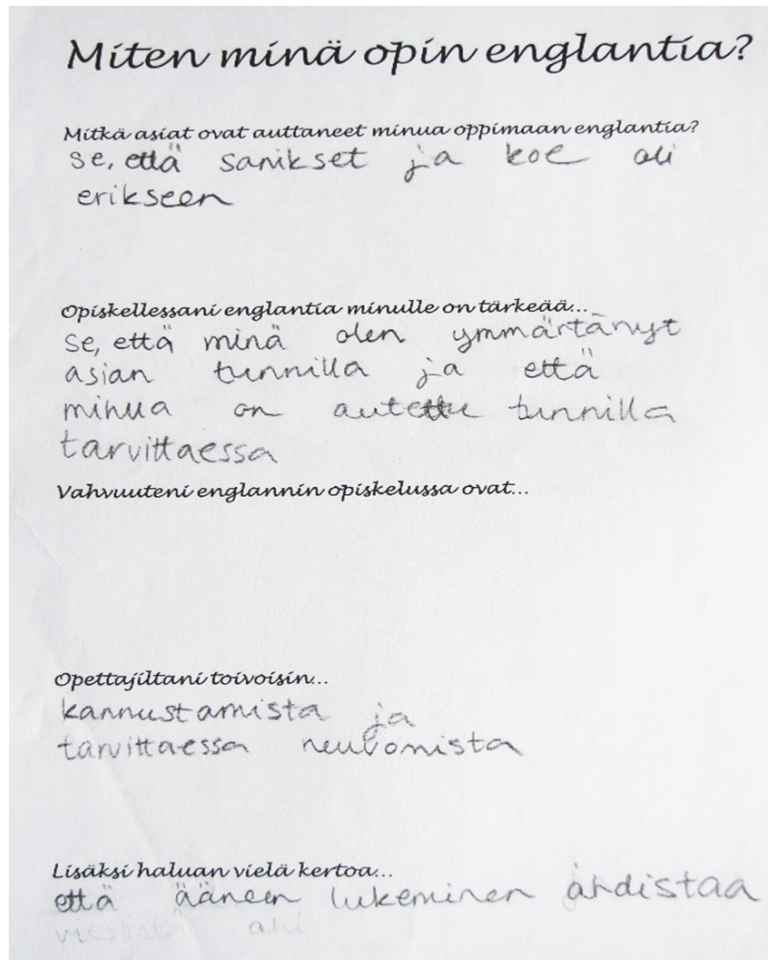 Miten minä opin englantia?
Mitkä asiat ovat auttaneet minua oppimaan englantia?
se, että sanikset ja koe oli
erikseen
Opiskellessani englantia minulle on tärkeää...
se, että minä olen ymmärtänyt
asian tunnilla ja että
minua on autettu tunnilla
tarvittaessa
Vahvuuteni englannin opiskelussa ovat...
Opettajiltani toivoisin...
kannustamista ja
tarvittaessa neuvomista
Lisäksi haluan vielä kertoa...
että ääneen lukeminen ahdistaa